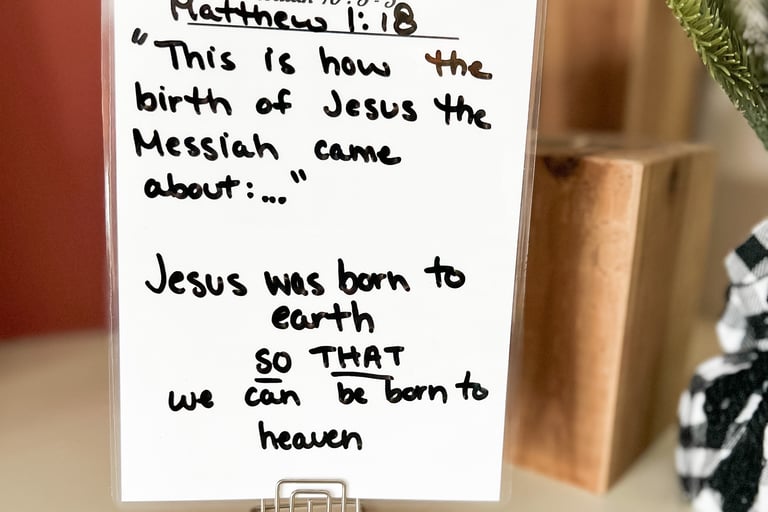 Matthew 1:18
"This is how the
birth of Jesus the
Messiah came
about:..."
Jesus was born to
earth
SO THAT
we can be born to
heaven